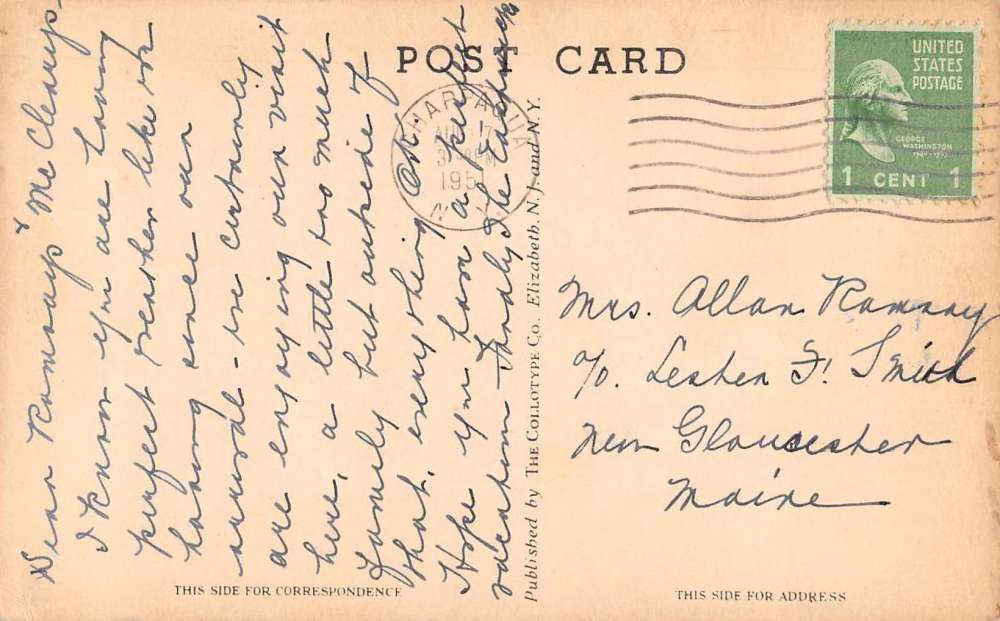 POST CARD
UNITED
STATES
POSTAGE
GEORGE
WASHINGTON
1 CENT 1
AUG 17
PM
195
N
Dear Ramsays & McCleary's
I know you are having
perfect weather like we're
having since our
arrival - we certainly
are enjoying our visit
here, a little too much
family but outside of
that, everything OK.
Hope you have a perfect
vacation - Fondly, The
Mrs. Allan Ramsay
c/o. Lester F. Smith
New Gloucester
Maine
Published by THE COLLOTYPE CO., Elizabeth, N. J. and N. Y.
THIS SIDE FOR CORRESPONDENCE
THIS SIDE FOR ADDRESS